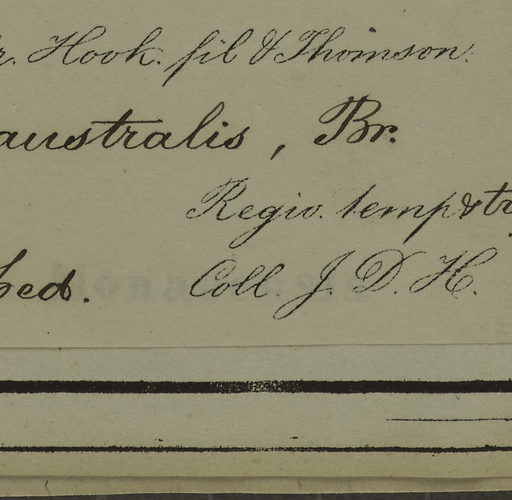 r. Hook. fil & Thomson.
australis, Br.
Regio. temp & tr
hed. Coll. J. D. H.